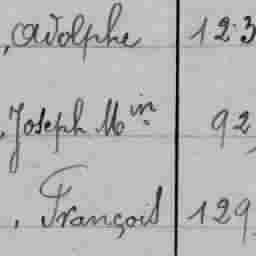 , Adolphe 12.3
, Joseph Min 92,
, François 129,